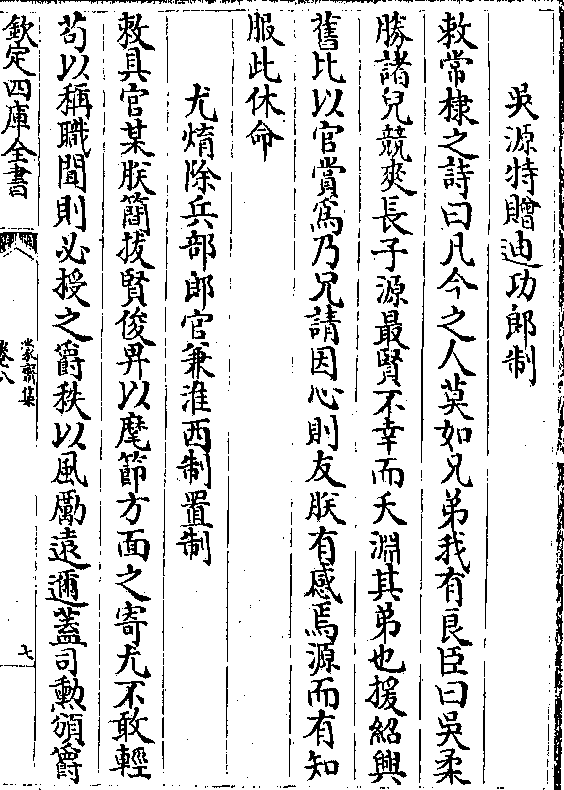 吳源特贈迪功郎制
敕常棣之詩曰凡今之人莫如兄弟我有良臣曰吳柔
勝諸兒競爽長子源最賢不幸而夭淵其弟也援紹興
舊比以官賞為乃兄請因心則友朕有感焉源而有知
服此休命
尤焴除兵部郎官兼淮西制置制
敕具官某朕簡拔賢俊畀以麾節方面之寄尤不敢輕
茍以稱職聞則必授之爵秩以風勵遠邇蓋司勳頒爵
欽定四庫全書
蒙齋集
卷八
七